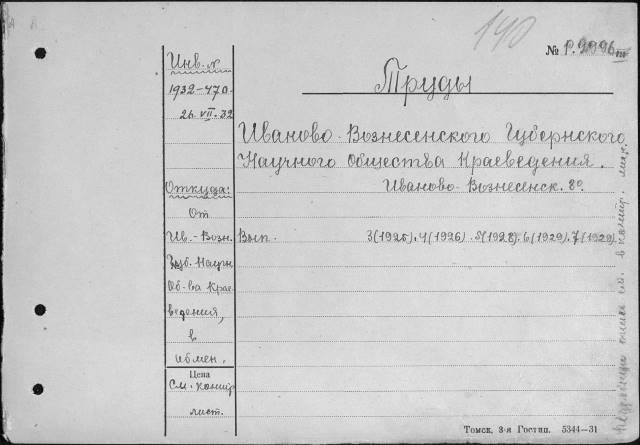 140
№ р. 2996
Труды
Инв. №
1932-470
26 VII. 32
Иваново-Вознесенского Губернского
Научного Общества Краеведения.
Иваново-Вознесенск. 8º
Откуда:
От
Ив.-Возн.
Губ. Научн
Об-ва Крае
ведения,
в
обмен.
Вып. 3(1925). 4(1926). 5(1928). 6(1929). 7(1929)
Цена
См. контр
лист.
см. в контр. лис.
Томск, 3-я Гостип. 5344—31